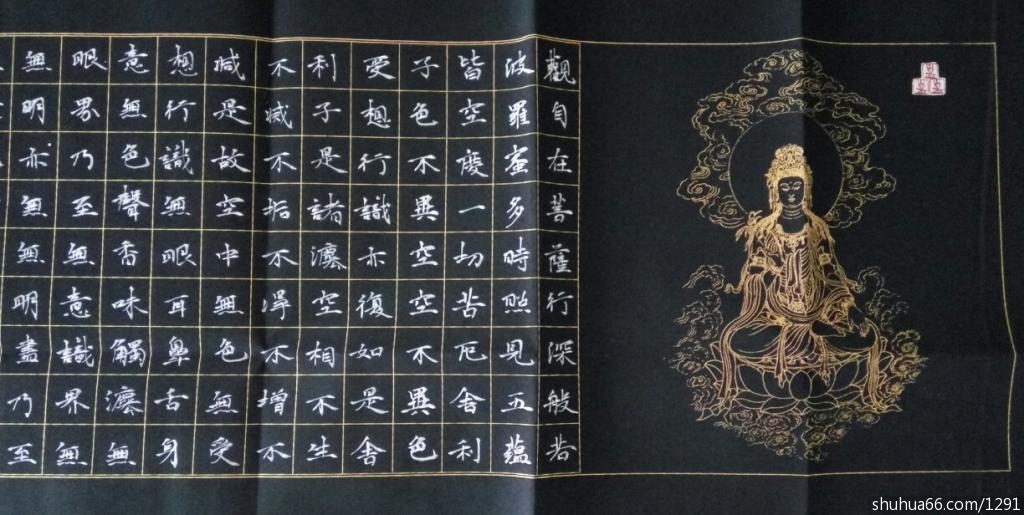 觀自在菩薩行深般若
波羅蜜多時照見五蘊
皆空度一切苦厄舍利
子色不異空空不異色
受想行識亦復如是舍
利子是諸灋空相不生
不滅不垢不淨不增不
減是故空中無色無受
想行識無眼耳鼻舌身
意無色聲香味觸灋無
眼界乃至無意識界無
無明亦無無明盡乃至
shuhua66.com/1291